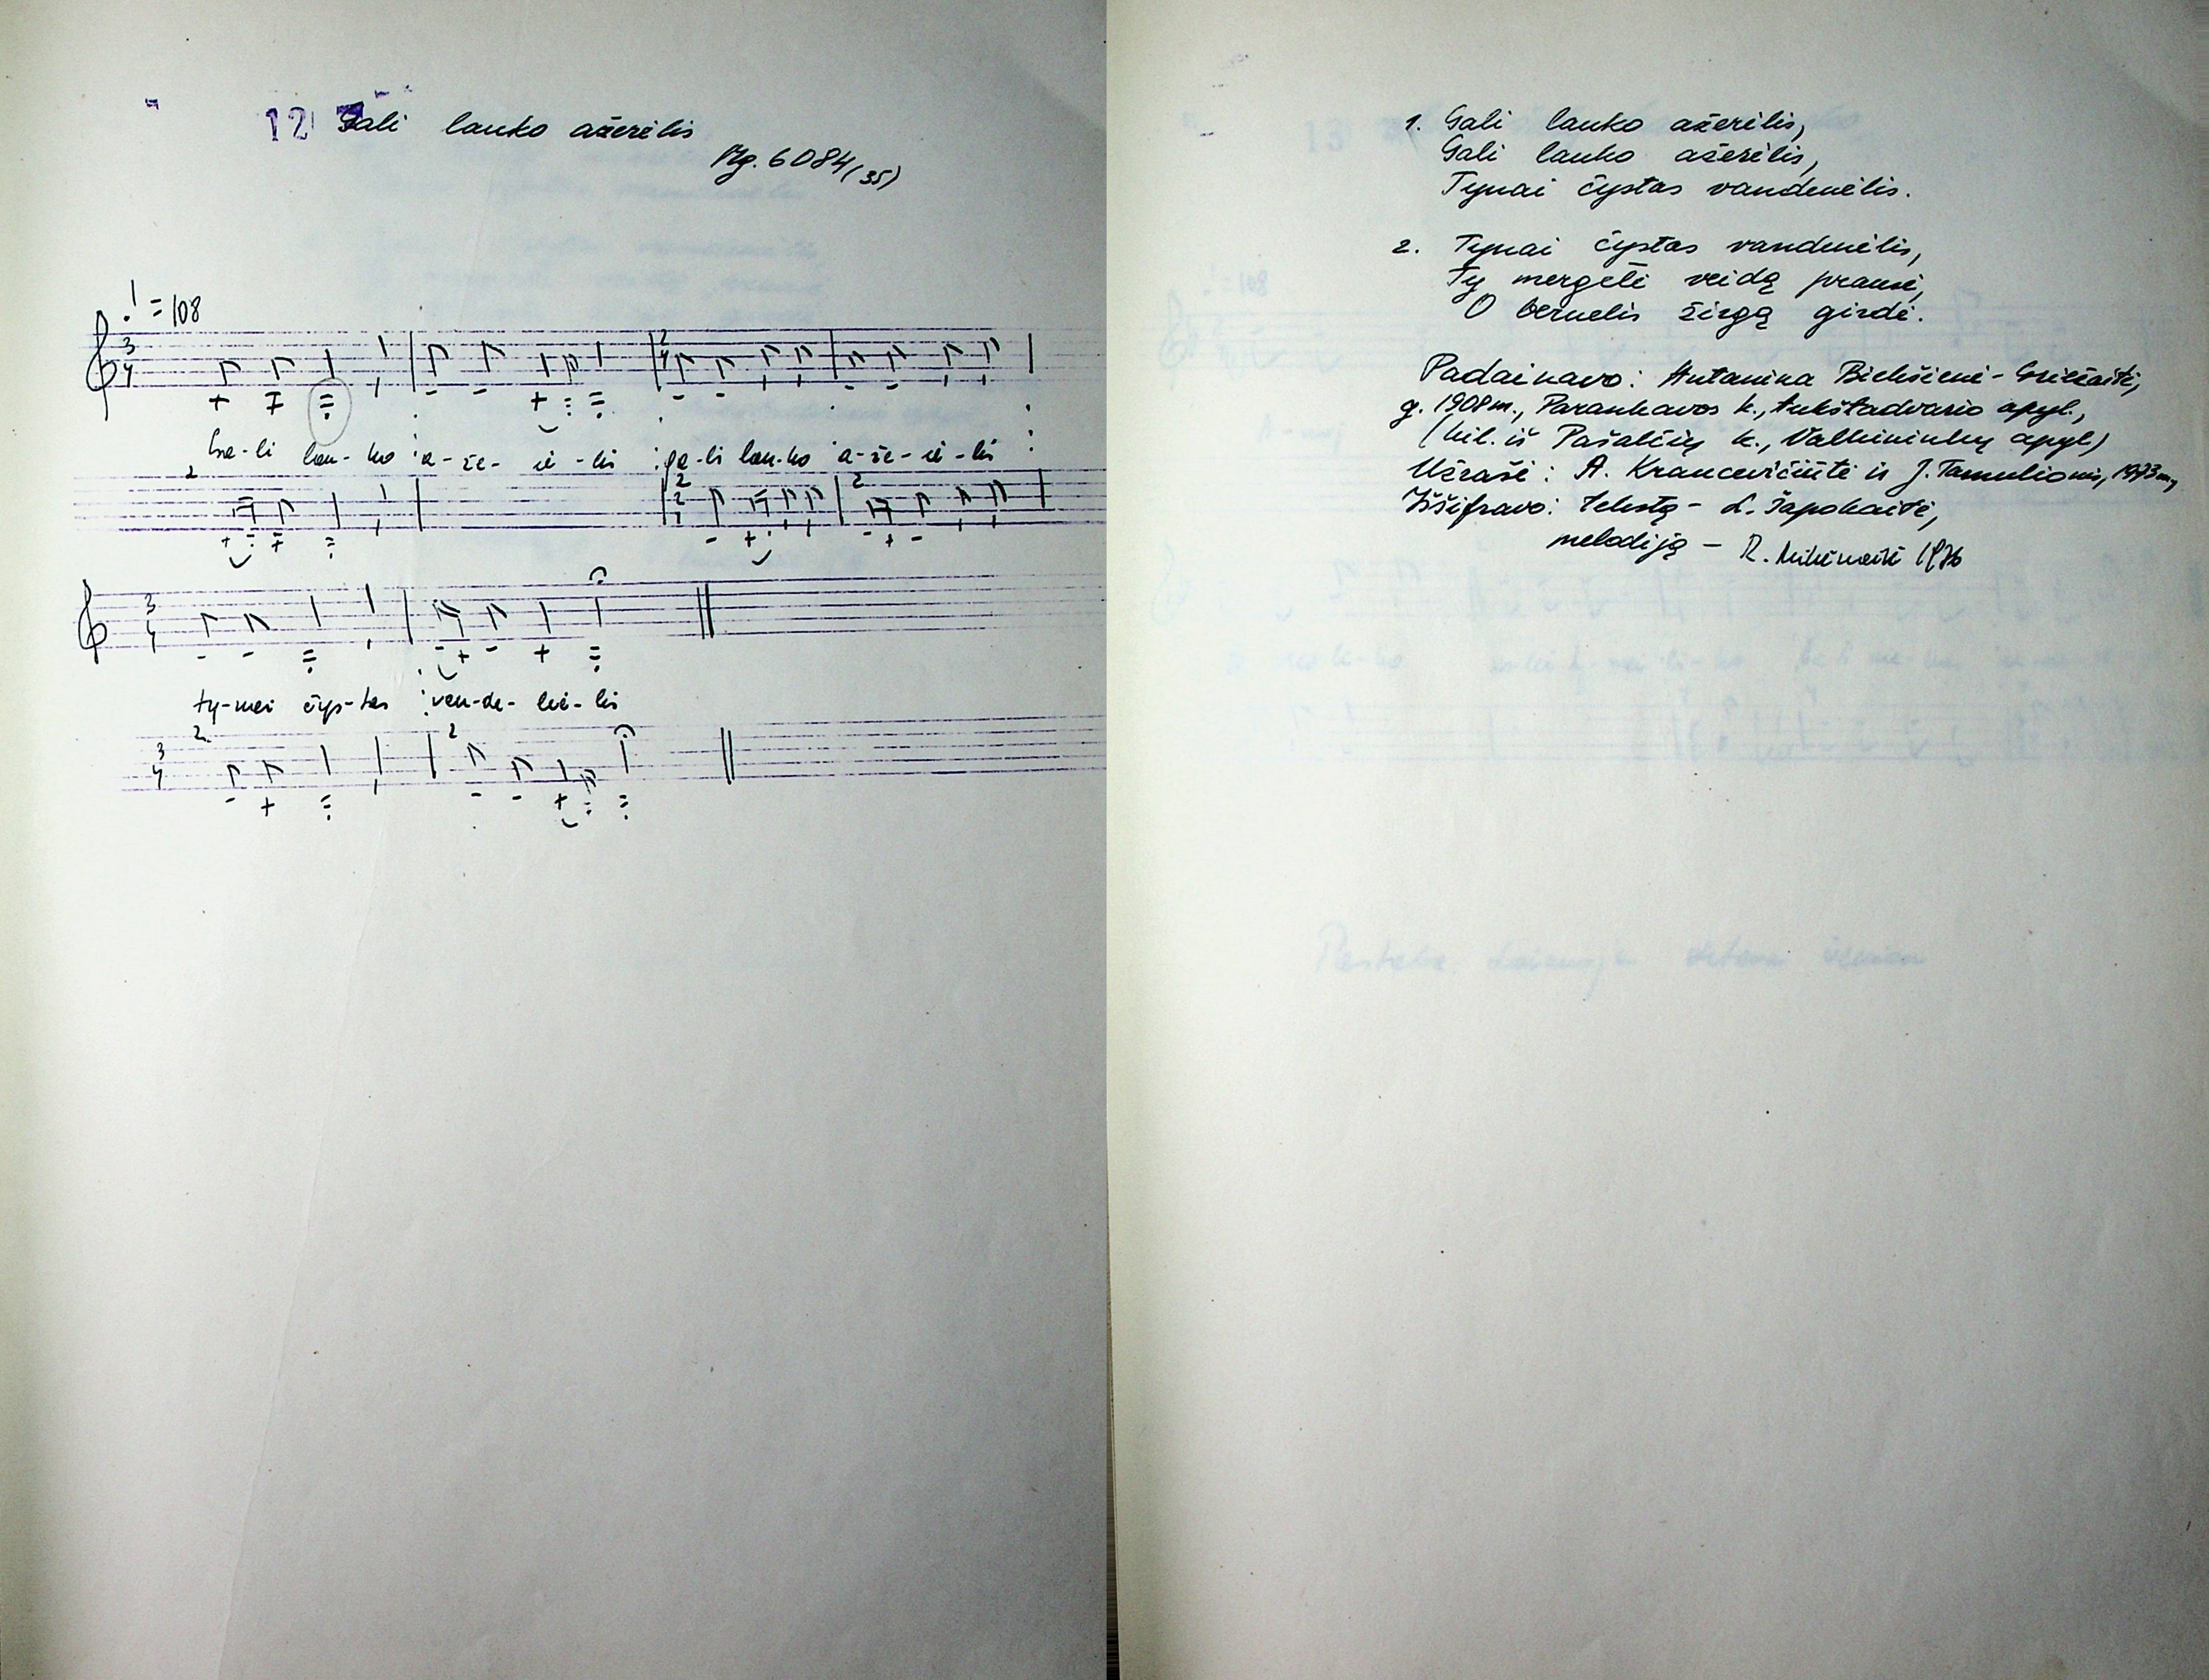 12 Gali lauko ažerėlis
Mg. 6084(35)
= 108
3 4
Ga-li lau-ko a-že-rė-lis ga-li lau-ko a-že-rė-lis
3 4
ty-nai čys-tas van-de-nė-lis
2.
3 4
1. Gali lauko ažerėlis,
Gali lauko ažerėlis,
Tynai čystas vandenėlis.
2. Tynai čystas vandenėlis,
Ty mergelė veidą prausė,
O bernelis žirgą girdė.
Padainavo: Antanina
g. 1908 m., k., Aukštadvario apyl.,
(kil. iš Pašalčių k., Valkininkų apyl.)
Užrašė: A. Krancevičiūtė ir J. Tamulionis, 1973 m.,
Iššifravo: tekstą - L. Šapokaitė,
melodiją - R. 1976